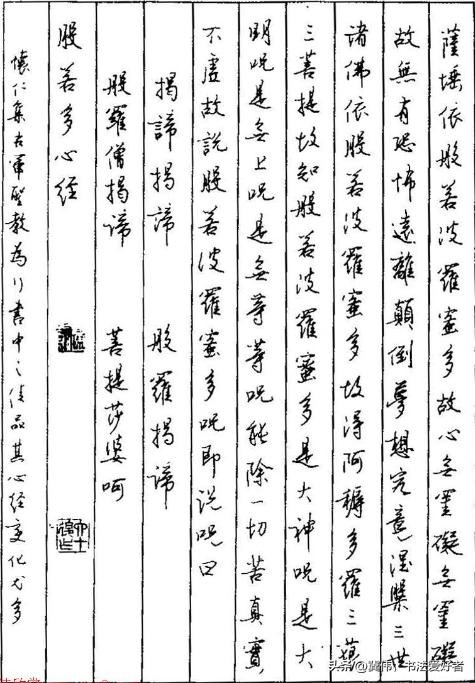 薩埵依般若波羅蜜多故心無罣礙無罣礙
故無有恐怖遠離顛倒夢想究竟涅槃三世
諸佛依般若波羅蜜多故得阿耨多羅三藐
三菩提故知般若波羅蜜多是大神咒是大
明咒是無上咒是無等等咒能除一切苦真實
不虛故說般若波羅蜜多咒即說咒曰
揭諦揭諦 般羅揭諦
般羅僧揭諦 菩提莎婆呵
般若多心經
懷仁集右軍聖教為行書中之佳品其心經變化尤多
头条@龚伟,书法爱好者